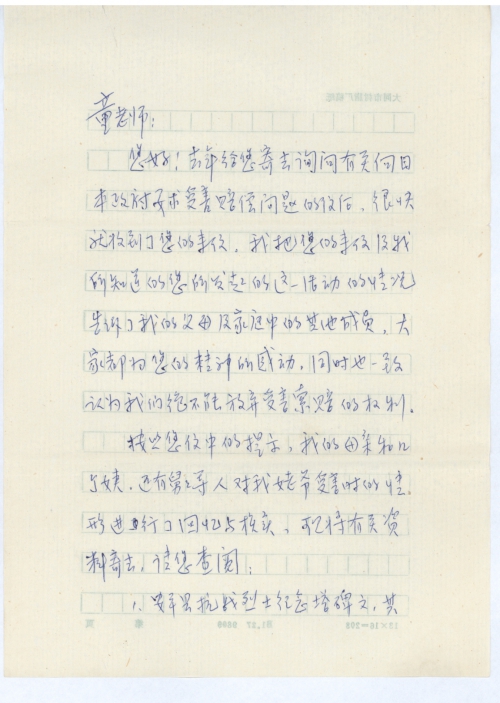 童老师：
您好！去年给您寄去询问有关向日
本政府要求受害赔偿问题的信后，很快
就收到了您的来信，我把您的来信及我
所知道的您所发起的这一活动的情况
告诉了我的父母及家庭中的其他成员，大
家都为您的精神所感动，同时也一致
认为我们绝不能放弃受害索赔的权利。
按照您信中的提示，我的母亲和几
个姨，还有舅舅等人对我姥爷受害时的情
形进行了回忆与核实，现将有关资
料寄去，请您查阅：
1、县抗战烈士纪念塔碑文，其